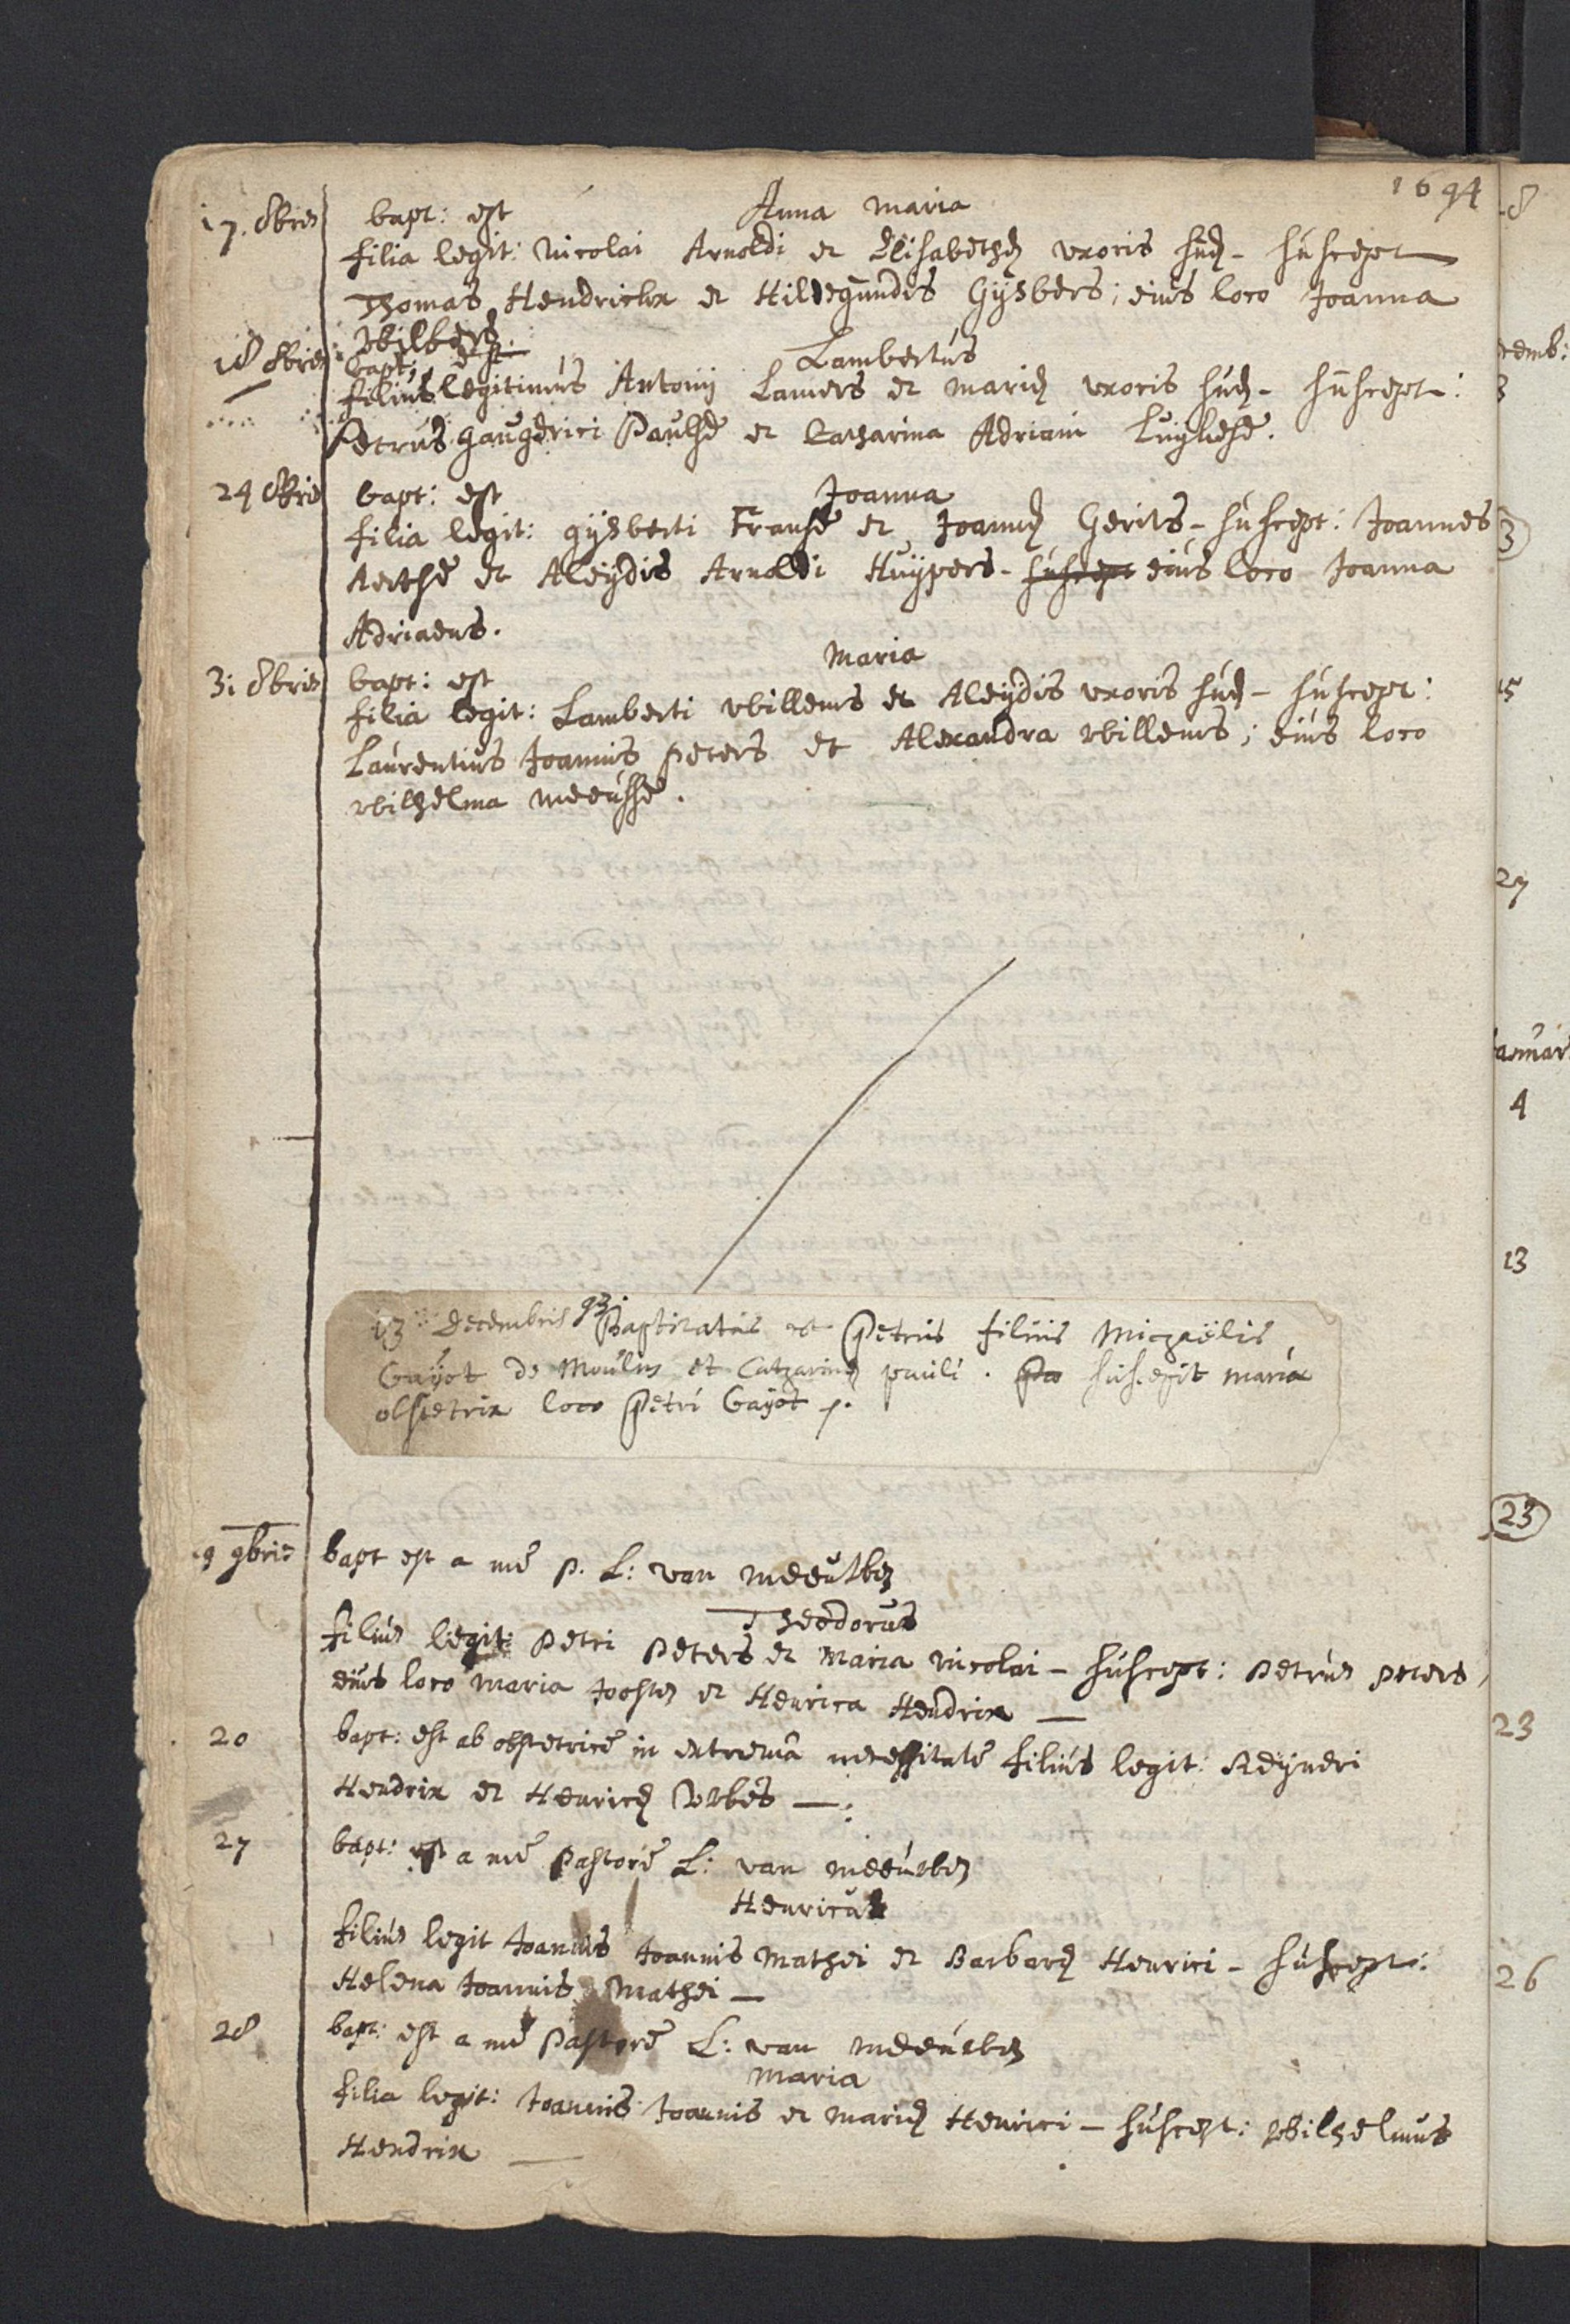 1694
17. 8bris bapt: est Anna Maria
filia legit: Nicolai Arnoldi et Elisabethæ uxoris suæ - suscept
Thomas Hendrickx et Hildegundis Gijsbers; eius loco Joanna
Wilbers.
18 8bris bapt: est Lambertus
filius legitimus Antonij Lamers et Mariæ uxoris suæ - suscept:
Petrus Gaugerici Paulse et Catharina Adriani Luijkese.
24 8bris bapt: est Joanna
filia legit: Gijsberti Franse et Joannæ Gerits - suscept: Joannes
Aertse et Aleijdis Arnoldi Huijpers - suscept eius loco Joanna
Adriaens.
31 8bris bapt: est Maria
filia legit: Lamberti Willems et Aleijdis uxoris suæ - suscept:
Laurentius Joannis Peters et Alexandra Willems; eius loco
Wilhelma Meeusse.
13 Decembris 93 Baptizatus est Petrus filius Michaëlis
Gaijot de Moulin et Catharinæ Pauli. suscepit Maria
obstetrix loco Petri Gaijot
9 9bris bapt est a me P. L: van
Theodorus
filius legit: Petri Peters et Maria Nicolai - suscept: Petrus Peters,
eius loco Maria Joosten et Henrica Hendrix —
20 bapt: est ab obstetrice in extrema necessitate filius legit: Reijneri
Hendrix et Henricæ —
27 bapt: est a me Pastore L: van
Henricus
filius legit Joannis Joannis Mathei et Barbaræ Henrici - suscept:
Helena Joannis Mathei —
28 bapt: est a me Pastore L: van
Maria
filia legit: Joannis Joannis et Mariæ Henrici - suscept: Wilhelmus
Hendrix —
8
3
3
15
27
4
13
23
23
26